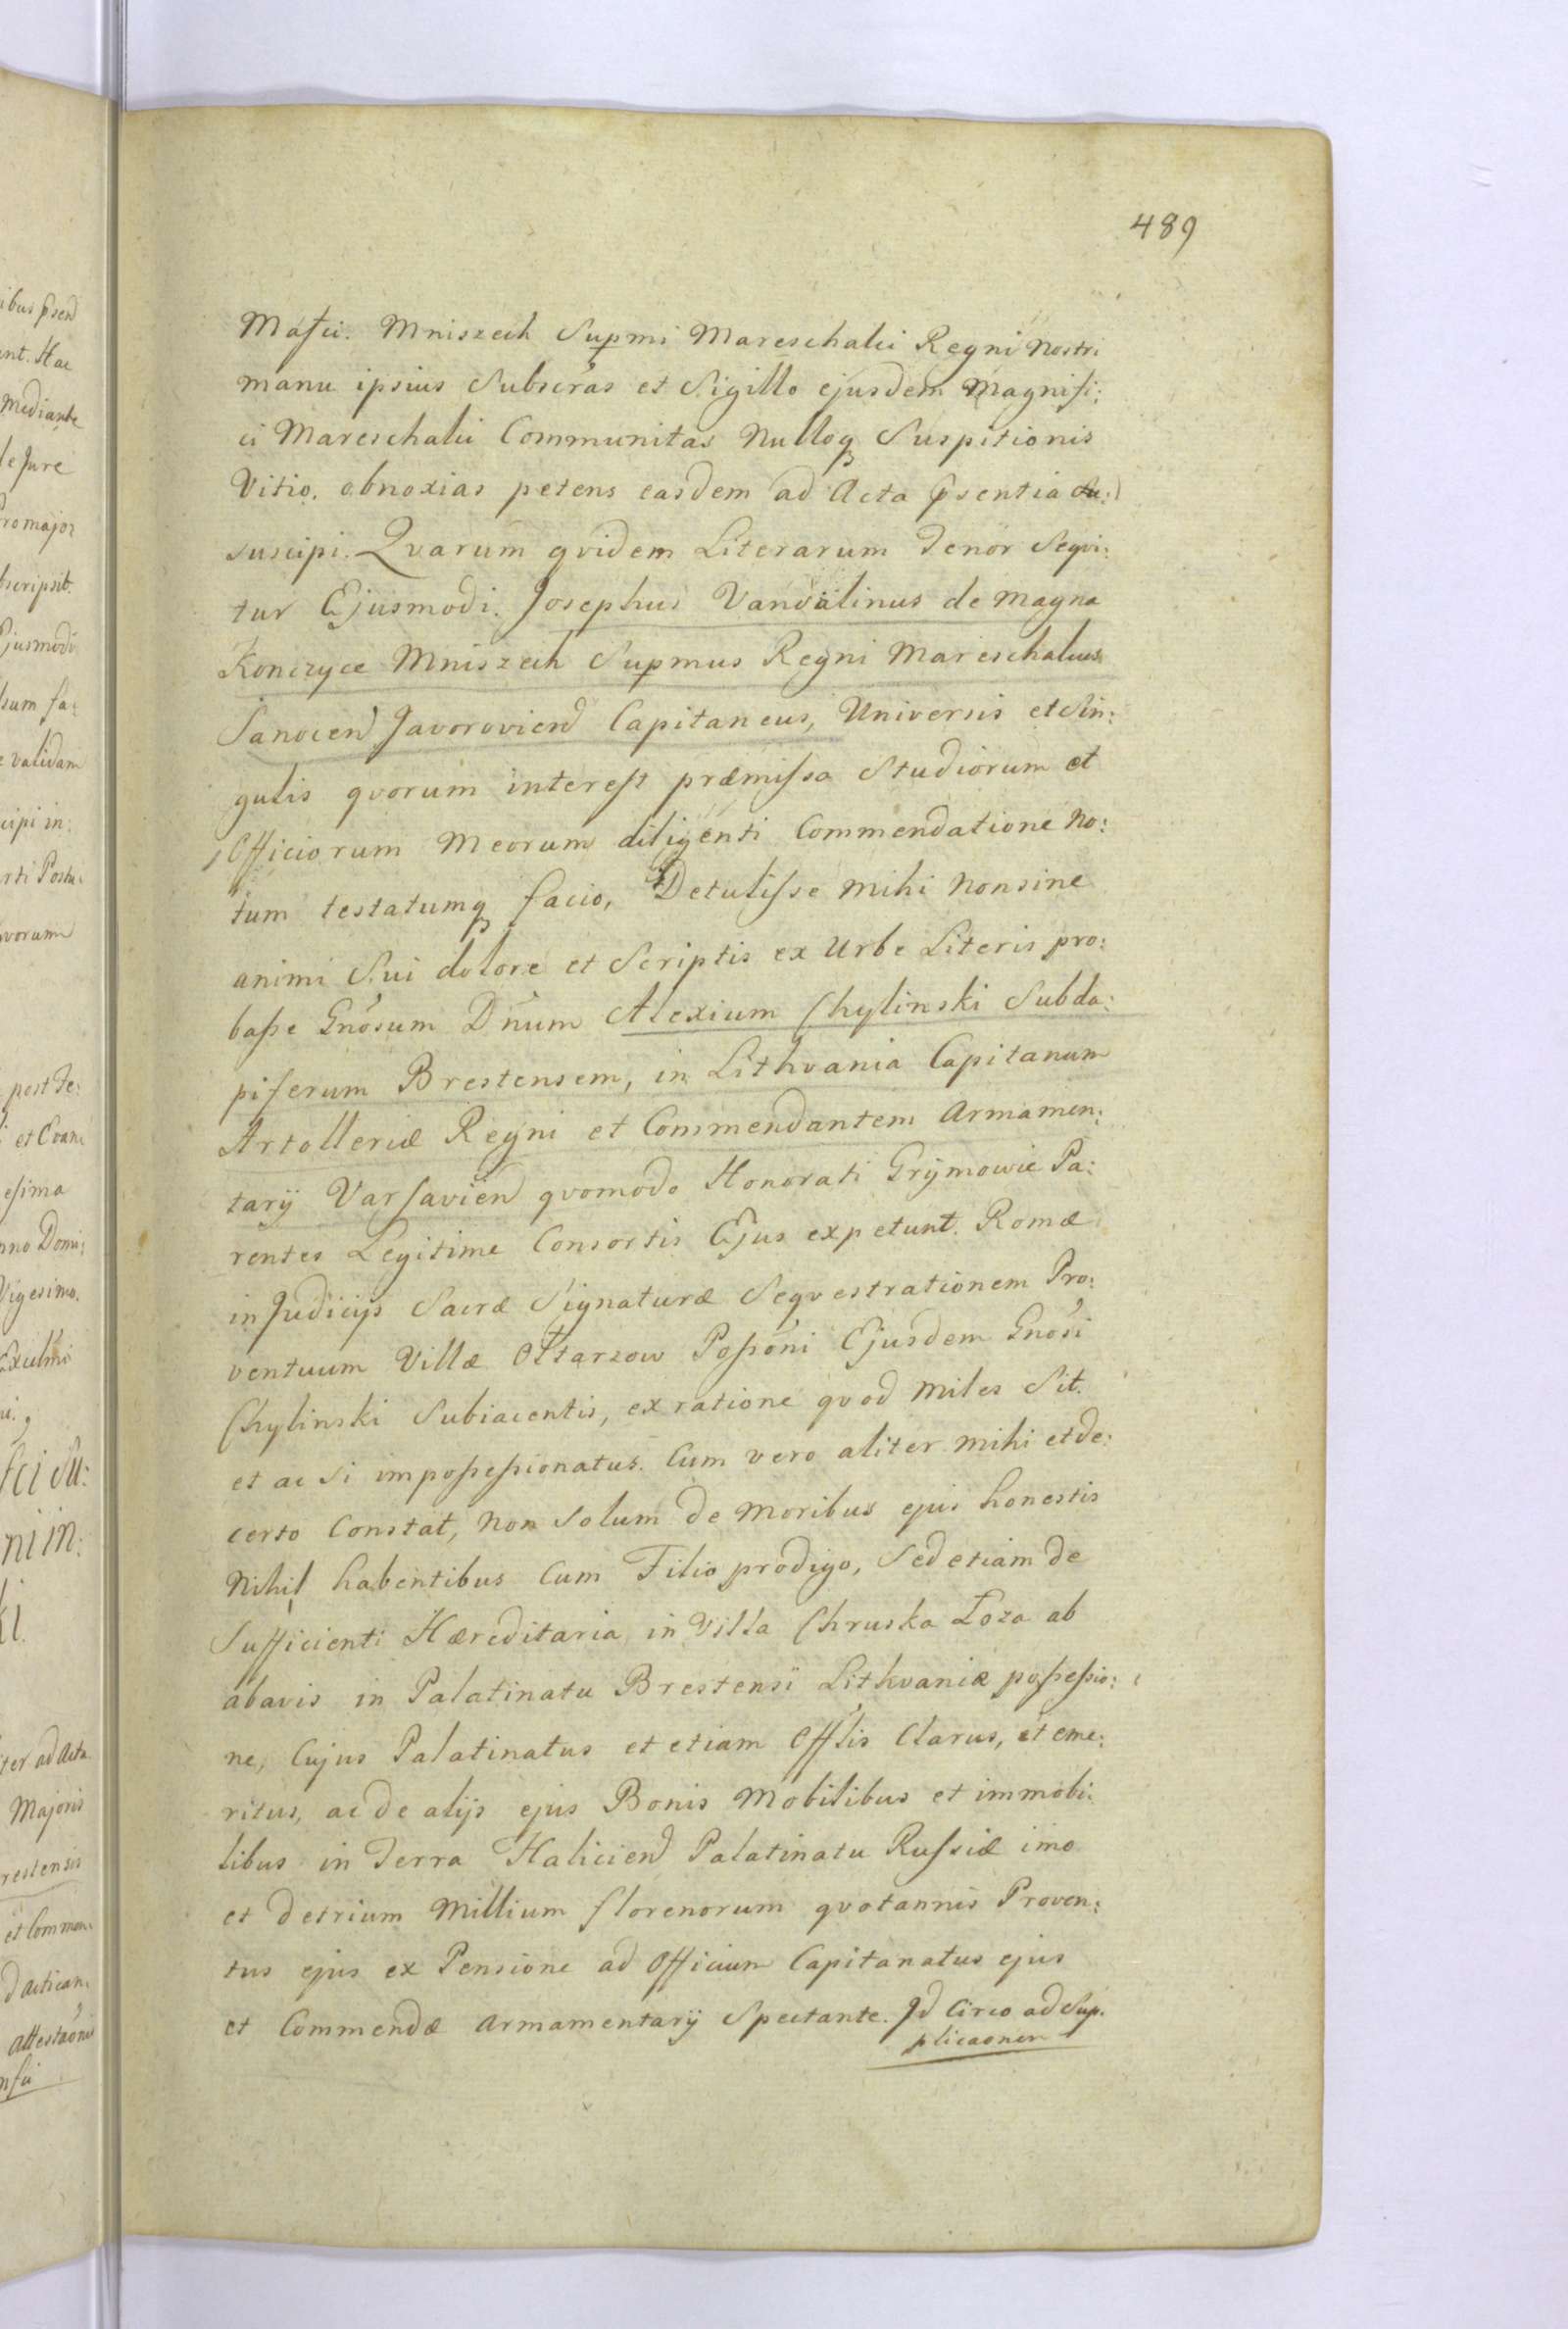 489
Mafci. Mniszech Supmi Mareschalci Regni Nostri
manu ipsius Subscras et Sigillo ejusdem Magnifi:
ci Mareschalci Communitas Nulloq Suspitionis
Vitio. obnoxias petens easdem ad Acta psentia
suscipi. Qvarum qvidem Literarum Tenor Seqvi:
tur Ejusmodi. Josephus Vandalinus de Magna
Konczyce Mniszech Supmus Regni Mareschalcus
Sanocen Javorovien Capitaneus, Universis et Sin:
gulis qvorum interest præmissa Studiorum et
Officiorum Meorum diligenti Commendatione No:
tum testatumq facio, Detulisse Mihi Nonsine
animi Sui dolore et Scriptis ex Urbe Literis pro:
basse Gnosum Dnum Alexium Chylinski Subda:
piferum Brestensem, in Lithvania Capitanum
Artolleriæ Regni et Commendantem Armamen:
tarij Varsavien qvomodo Honorati Grijmowie Pa:
rentes Legitime Consortis Ejus expetunt. Romæ
in Judicijs Sacræ Signaturæ Seqvestrationem Pro:
ventuum Villæ Ottarzow Possoni Ejusdem Gnosi
Chylinski Subiacentis, ex ratione qvod Miles Sit.
et ac Si impossessionatus. Cum vero aliter mihi et de:
certo Constat, Non Solum de Moribus ejus honestis
Nihil habentibus Cum Filio prodigo, Sed etiam de
Sufficienti Hæreditaria in Villa Chruska Loza ab
abavis in Palatinatu Brestensi Lithvaniæ possessio:
ne, Cujus Palatinatus et etiam Offlis Clarus, et eme:
ritus, ac de alijs ejus Bonis Mobilibus et immobi:
libus in Terra Halicien Palatinatu Russiæ imo
et de trium Millium florenorum qvotannis Proven:
tus ejus ex Pensione ad Officium Capitanatus ejus
et Commendæ Armamentarij Spectante. Id Circo ad Sup.
plicaonem